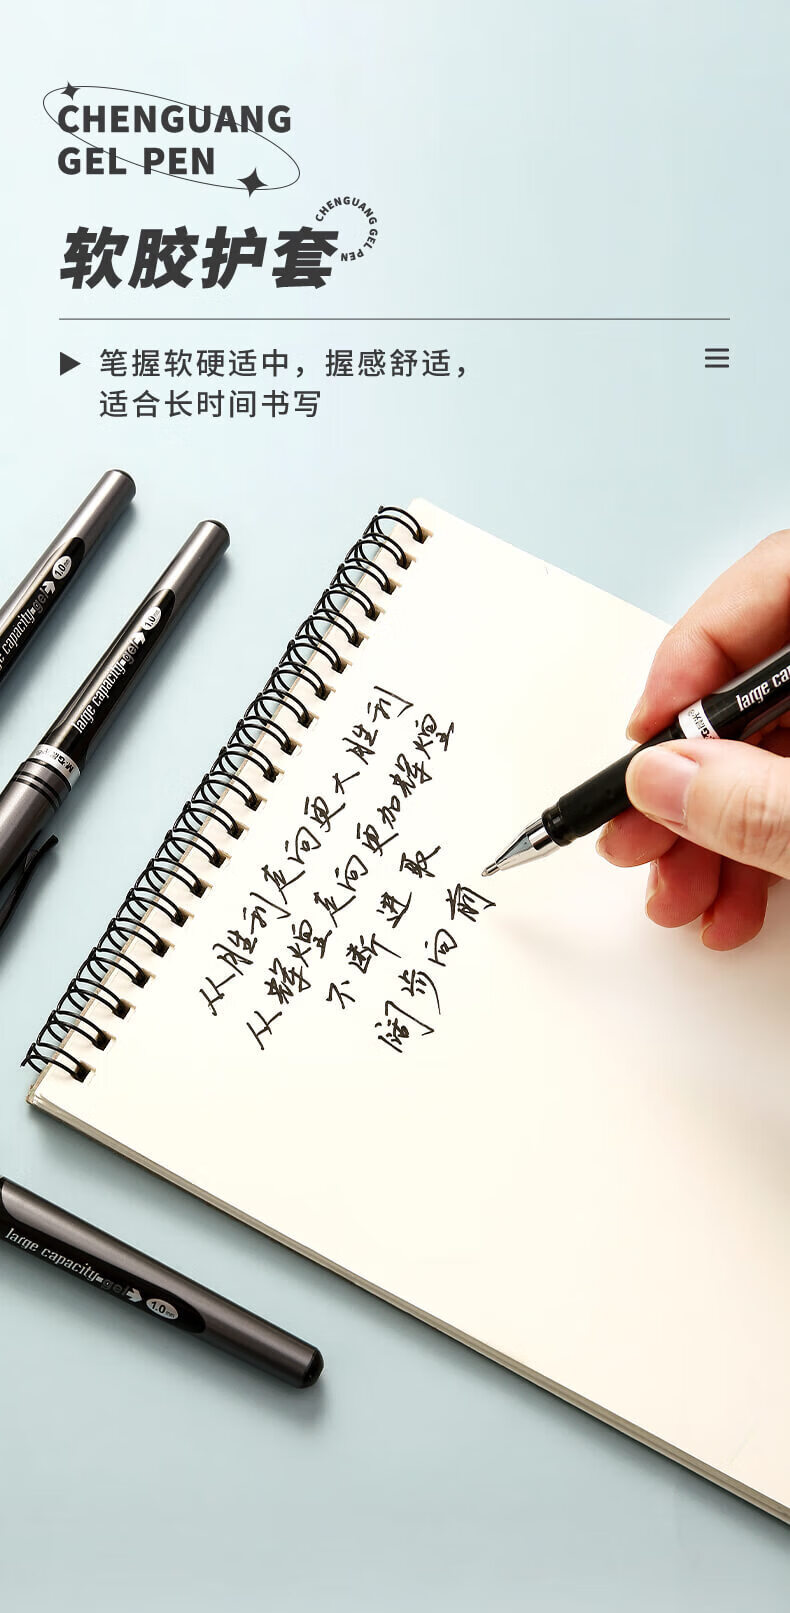 CHENGUANG
GEL PEN
软胶护套
CHENGUANG GEL PEN
笔握软硬适中，握感舒适，
适合长时间书写
large capacity gel 1.0mm
large capacity gel 1.0mm
M&G
从胜利走向更大胜利
从辉煌走向更加辉煌
不断进取
阔步向前
large ca
M&G晨光
large capacity gel 1.0mm